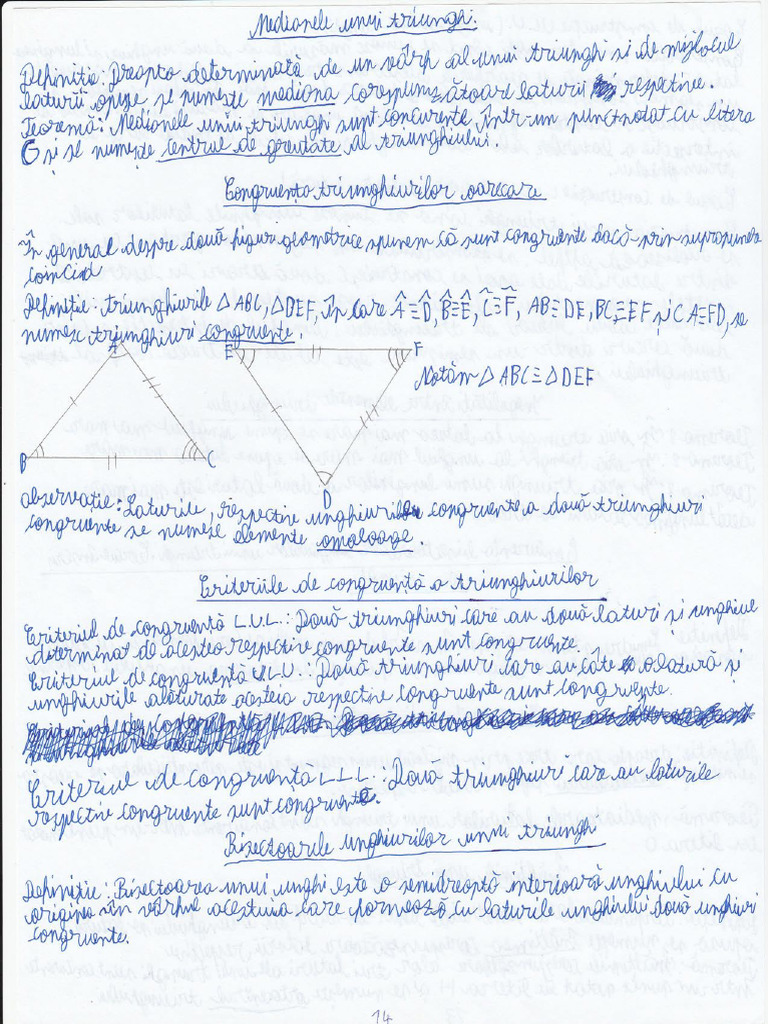 Medianele unui triunghi:
Definiție: Dreapta determinată de un vârf al unui triunghi și de mijlocul
laturii opuse se numește mediana corespunzătoare laturii respective.
Teoremă: Medianele unui triunghi sunt concurente într-un punct notat cu litera
G și se numește centrul de greutate al triunghiului.
Congruența triunghiurilor oarecare
În general despre două figuri geometrice spunem că sunt congruente dacă prin suprapunere
coincid
Definiție: triunghiurile △ABC, △DEF, în care Â≡D̂, B̂≡Ê, Ĉ≡F̂, AB≡DE, BC≡EF și CA≡FD, se
numesc triunghiuri congruente.
A E F
Notăm △ABC≡△DEF
B C
D
observație: Laturile, respectiv unghiurile congruente a două triunghiuri
congruente se numesc elemente omoloage.
Criteriile de congruență a triunghiurilor
Criteriul de congruență L.U.L.: Două triunghiuri care au două laturi și unghiul
determinat de acestea respectiv congruente sunt congruente.
Criteriul de congruență U.L.U.: Două triunghiuri care au câte o latură și
unghiurile alăturate acesteia respectiv congruente sunt congruente.
Criteriul de congruență L.L.L.: Două triunghiuri care au laturile
respectiv congruente sunt congruente.
Bisectoarele unghiurilor unui triunghi
Definiție: Bisectoarea unui unghi este o semidreaptă interioară unghiului cu
originea în vârful acestuia care formează cu laturile unghiului două unghiuri
congruente.
14